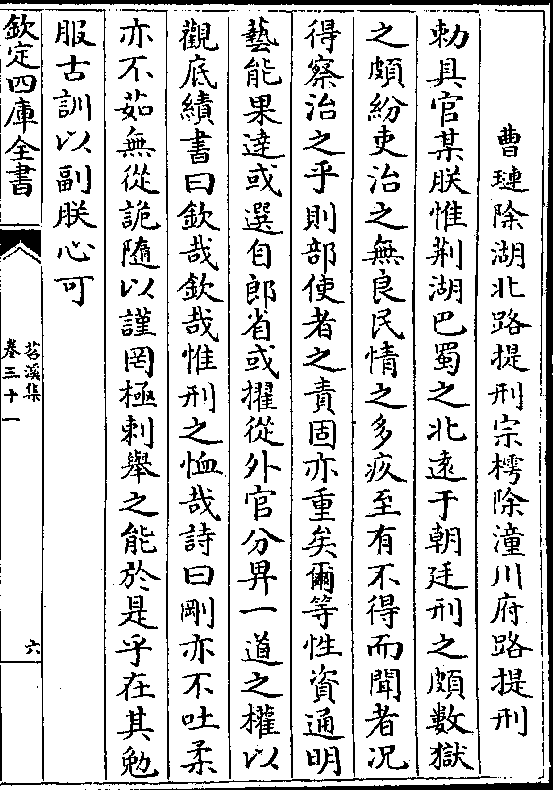 曹璉除湖北路提刑宗樗除潼川府路提刑
勅具官某朕惟荆湖巴蜀之北逺于朝廷刑之頗數獄
之頗紛吏治之無良民情之多疚至有不得而聞者况
得察治之乎則部使者之責固亦重矣爾等性資通明
藝能果達或選自郎省或擢從外官分畀一道之權以
觀底績書曰欽哉欽哉惟刑之恤哉詩曰剛亦不吐柔
亦不茹無從詭隨以謹罔極剌舉之能於是乎在其勉
服古訓以副朕心可
欽定四庫全書
苕溪集
卷三十一
六